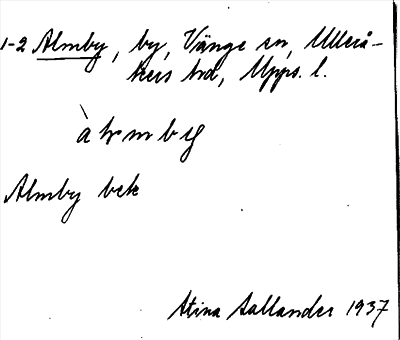 1-2 Almby, by, Vänge sn, Ullerå-
kers hd, Upps. l.
Almby bek
Stina Sallander 1937